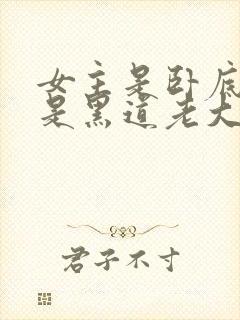 女主是卧底
是黑道老大
君子不寸